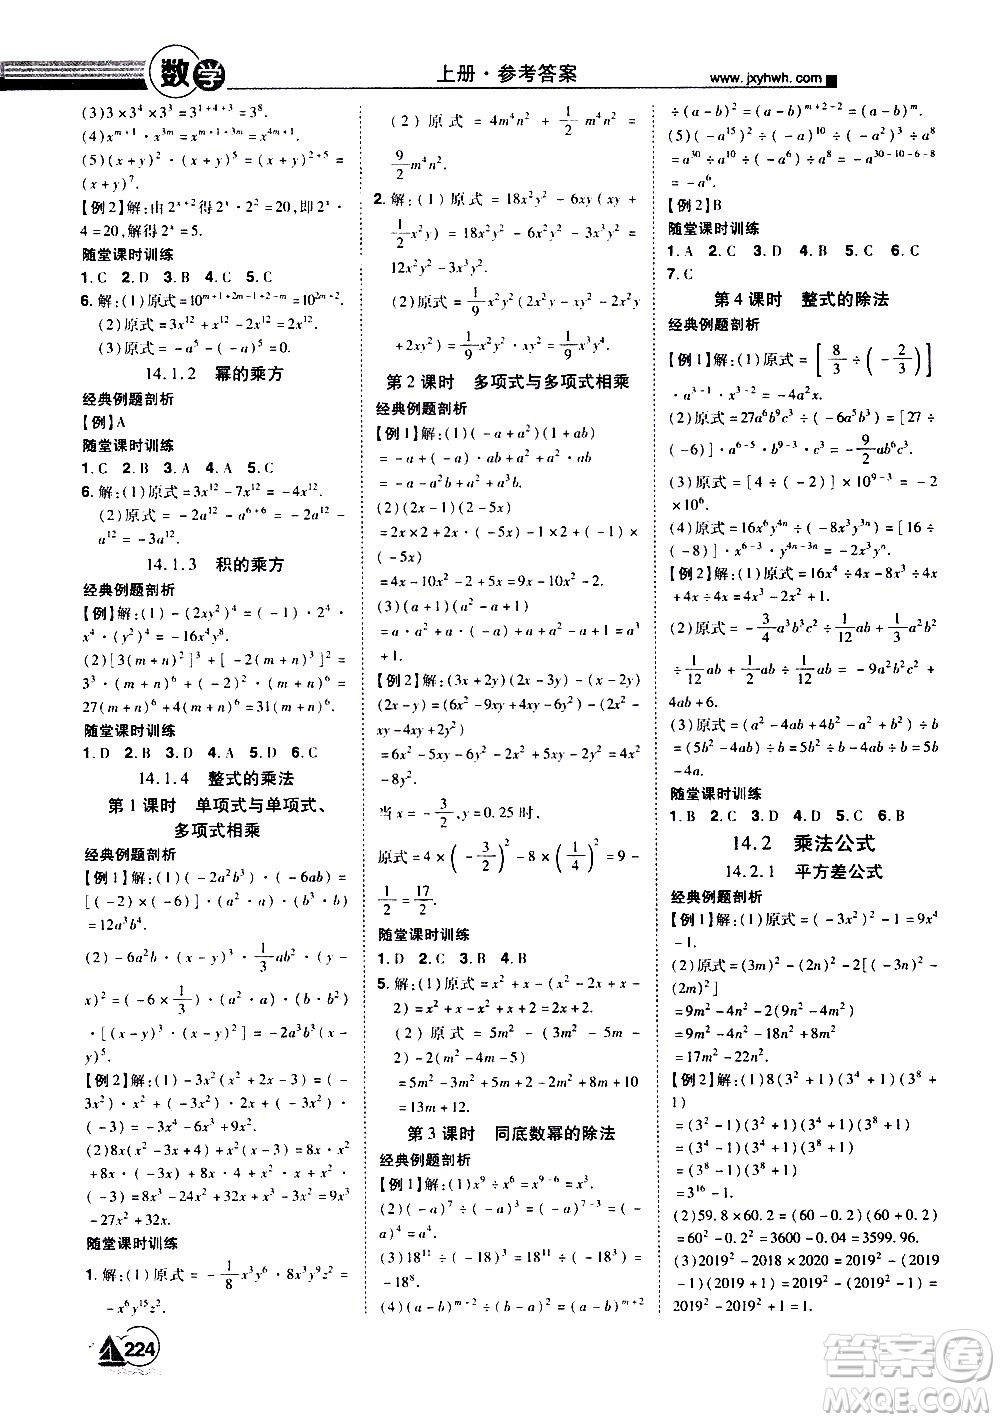 数学
上册·参考答案
www.jxyhwh.com
(3)3×3⁴×3³=3¹⁺⁴⁺³=3⁸.
(4)xᵐ⁺¹·x³ᵐ=xᵐ⁺¹⁺³ᵐ=x⁴ᵐ⁺¹.
(5)(x+y)²·(x+y)⁵=(x+y)²⁺⁵=
(x+y)⁷.
【例2】解:由2ˣ⁺²得2ˣ·2²=20,即2ˣ·
4=20,解得2ˣ=5.
随堂课时训练
1. C 2. D 3. B 4. C 5. C
6. 解:(1)原式=10ᵐ⁺¹⁺²ᵐ⁻¹⁺²⁻ᵐ=10²ᵐ⁺².
(2)原式=x¹²+x¹²-2x¹²=2x¹²-2x¹²=0.
(3)原式=-a⁵-(-a⁵)=0.
14.1.2 幂的乘方
经典例题剖析
【例】A
随堂课时训练
1. C 2. D 3. A 4. A 5. C
6. 解:(1)原式=3x¹²-7x¹²=-4x¹².
(2)原式=-2a¹²-a⁶⁺⁶=-2a¹²-
a¹²=-3a¹².
14.1.3 积的乘方
经典例题剖析
【例】解:(1)-(2xy²)⁴=(-1)·2⁴·
x⁴·(y²)⁴=-16x⁴y⁸.
(2)[3(m+n)²]³+[-2(m+n)³]²=
3³·(m+n)⁶+(-2)²·(m+n)⁶=
27(m+n)⁶+4(m+n)⁶=31(m+n)⁶.
随堂课时训练
1. D 2. B 3. A 4. C 5. D 6. C
14.1.4 整式的乘法
第1课时 单项式与单项式、
多项式相乘
经典例题剖析
【例1】解:(1)(-2a²b³)·(-6ab)=
[(-2)×(-6)]·(a²·a)·(b³·b)
=12a³b⁴.
(2)-6a²b·(x-y)³·1/3ab²·(y-
x)²=(-6×1/3)·(a²·a)·(b·b²)
·[(x-y)³·(x-y)²]=-2a³b³(x-
y)⁵.
【例2】解:(1)-3x²(-x²+2x-1)=(-
3x²)·(-x²)+(-3x²)·2x+(-
3x²)·(-1)=3x⁴-6x³+3x².
(2)8x(x²-3x+4)+(-3x²)(x+1)=8x·
x²+8x·(-3x)+8x·4+(-3x²)·x+
(-3x²)=8x³-24x²+32x-3x³-3x²=5x³
-27x²+32x.
随堂课时训练
1. 解:(1)原式=-1/8x³y⁶·8x³y⁹z²=
-x⁶y¹⁵z².
(2)原式=4m⁴n²+1/2m⁴n²=
9/2m⁴n².
2. 解:(1)原式=18x²y²-6xy(xy+
1/2x²y)=18x²y²-6x²y²-3x³y²=
12x²y²-3x³y².
(2)原式=1/9x²y²(2x²y-x²y
+2xy²)=1/9x⁴y³+2/9x³y⁴.
第2课时 多项式与多项式相乘
经典例题剖析
【例1】解:(1)(-a+a²)(1+ab)
=-a+(-a)·ab+a²+a²·ab
=-a-a²b+a²+a³b.
(2)(2x-1)(2-5x)
=2x×2+2x·(-5x)+(-1)×2+(-1)×
(-5x)
=4x-10x²-2+5x=-10x²+9x-2.
(3)(a+1)(a²-a+1)
=a·a²-a·a+a+a²-a+1=a³
+1.
【例2】解:(3x+2y)(2x-3y)-(5x+y)
(2x-y)=(6x²-9xy+4xy-6y²)-(10x²
-5xy+2xy-y²)
=6x²-9xy+4xy-6y²-10x²+5xy-2xy+y²
=-4x²-2xy-5y².
随堂课时训练
1. D 2. C 3. B 4. B
第3课时 同底数幂的除法
经典例题剖析
【例1】解:(1)x⁹÷x⁶=x⁹⁻⁶=x³.
(2)(-a)⁷÷(-a)³=(-a)⁷⁻³=
(-a)⁴=a⁴.
(4)(a-b)ᵐ⁺²÷(b-a)²=(a-b)ᵐ⁺²
÷(a-b)²=(a-b)ᵐ⁺²⁻²=(a-b)ᵐ.
(5)(-a¹⁵)²÷(-a)¹⁰÷(-a²)³÷a⁸
=a³⁰÷a¹⁰÷(-a⁶)÷a⁸=-a³⁰⁻¹⁰⁻⁶⁻⁸
=-a⁶.
【例2】B
随堂课时训练
1. A 2. C 3. D 4. B 5. B 6. C
7. C
第4课时 整式的除法
经典例题剖析
【例1】解:(1)原式=[8/3÷(-2/3)]
·a³⁻¹·x³⁻²=-4a²x.
(2)原式=27a⁶b⁹c³÷(-6a⁵b³)=[27÷
(-6)]·a⁶⁻⁵·b⁹⁻³·c³=-9/2ab⁶c³.
(3)原式=[4÷(-2)]×10⁹⁻³=-2
×10⁶.
(4)原式=16x⁶y⁴ⁿ÷(-8x³y³ⁿ)=[16÷
(-8)]·x⁶⁻³·y⁴ⁿ⁻³ⁿ=-2x³yⁿ.
【例2】解:(1)原式=16x⁴÷4x-8x²÷4x
+4x÷4x=4x³-2x+1.
(3)原式=(a²-4ab+4b²-a²+b²)÷b
=(5b²-4ab)÷b=5b²÷b-4ab÷b
=5b-4a.
随堂课时训练
1. B 2. C 3. D 4. D 5. C 6. B
14.2 乘法公式
14.2.1 平方差公式
经典例题剖析
【例1】解:(1)原式=(-3x²)²-1²=9x⁴
-1.
(2)原式=(3m)²-(2n)²-2[(3n)²-
(2m)²]
=9m²-4n²-2(9n²-4m²)
=9m²-4n²-18n²+8m²
=17m²-22n².
【例2】解:(1)8(3²+1)(3⁴+1)(3⁸+
1)
=(3²-1)(3²+1)(3⁴+1)(3⁸+1)
=(3⁴-1)(3⁴+1)(3⁸+1)
=(3⁸-1)(3⁸+1)
=3¹⁶-1.
(2)59.8×60.2=(60-0.2)(60+0.2)
=60²-0.2²=3600-0.04=3599.96.
(3)2019²-2018×2020=2019²-(2019
-1)(2019+1)=2019²-(2019²-1)=
2019²-2019²+1=1.
224
答案圈
MXQE.COM